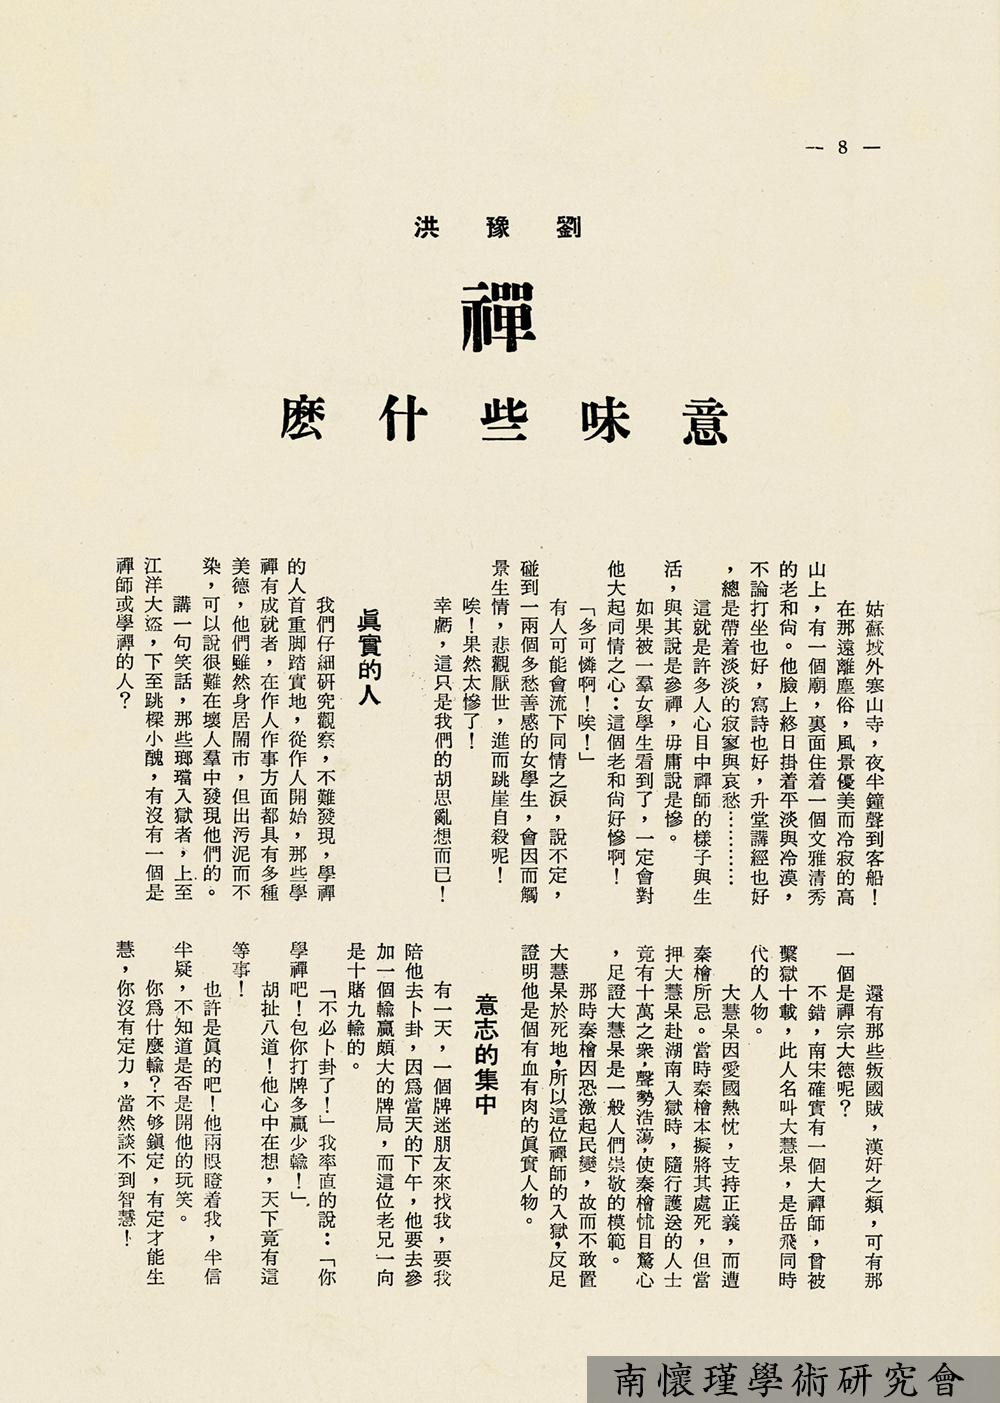 — 8 —
劉豫洪
禪
意味些什麽
姑蘇城外寒山寺，夜半鐘聲到客船！
在那遠離塵俗，風景優美而冷寂的高
山上，有一個廟，裏面住着一個文雅清秀
的老和尙。他臉上終日掛着平淡與冷漠，
不論打坐也好，寫詩也好，升堂講經也好
，總是帶着淡淡的寂寥與哀愁…………
這就是許多人心目中禪師的樣子與生
活，與其說是參禪，毋庸說是慘。
如果被一羣女學生看到了，一定會對
他大起同情之心：這個老和尙好慘啊！
「多可憐啊！唉！」
有人可能會流下同情之淚，說不定，
碰到一兩個多愁善感的女學生，會因而觸
景生情，悲觀厭世，進而跳崖自殺呢！
唉！果然太慘了！
幸虧，這只是我們的胡思亂想而已！
眞實的人
我們仔細研究觀察，不難發現，學禪
的人首重脚踏實地，從作人開始，那些學
禪有成就者，在作人作事方面都具有多種
美德，他們雖然身居鬧市，但出污泥而不
染，可以說很難在壞人羣中發現他們的。
講一句笑話，那些瑯璫入獄者，上至
江洋大盜，下至跳樑小醜，有沒有一個是
禪師或學禪的人？
還有那些叛國賊，漢奸之類，可有那
一個是禪宗大德呢？
不錯，南宋確實有一個大禪師，曾被
繫獄十載，此人名叫大慧杲，是岳飛同時
代的人物。
大慧杲因愛國熱忱，支持正義，而遭
秦檜所忌。當時秦檜本擬將其處死，但當
押大慧杲赴湖南入獄時，隨行護送的人士
竟有十萬之衆，聲勢浩蕩，使秦檜怵目驚心
，足證大慧杲是一般人們崇敬的模範。
那時秦檜因恐激起民變，故而不敢置
大慧杲於死地，所以這位禪師的入獄，反足
證明他是個有血有肉的眞實人物。
意志的集中
有一天，一個牌迷朋友來找我，要我
陪他去卜卦，因爲當天的下午，他要去參
加一個輸贏頗大的牌局，而這位老兄一向
是十賭九輸的。
「不必卜卦了！」我率直的說：「你
學禪吧！包你打牌多贏少輸！」
胡扯八道！他心中在想，天下竟有這
等事！
也許是眞的吧！他兩眼瞪着我，半信
半疑，不知道是否是開他的玩笑。
你爲什麼輸？不够鎭定，有定才能生
慧，你沒有定力，當然談不到智慧！
南懷瑾學術研究會